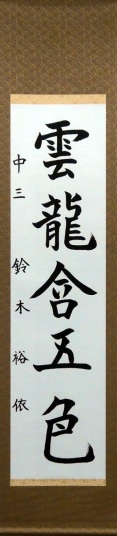 雲龍含五色
中三 鈴木裕依